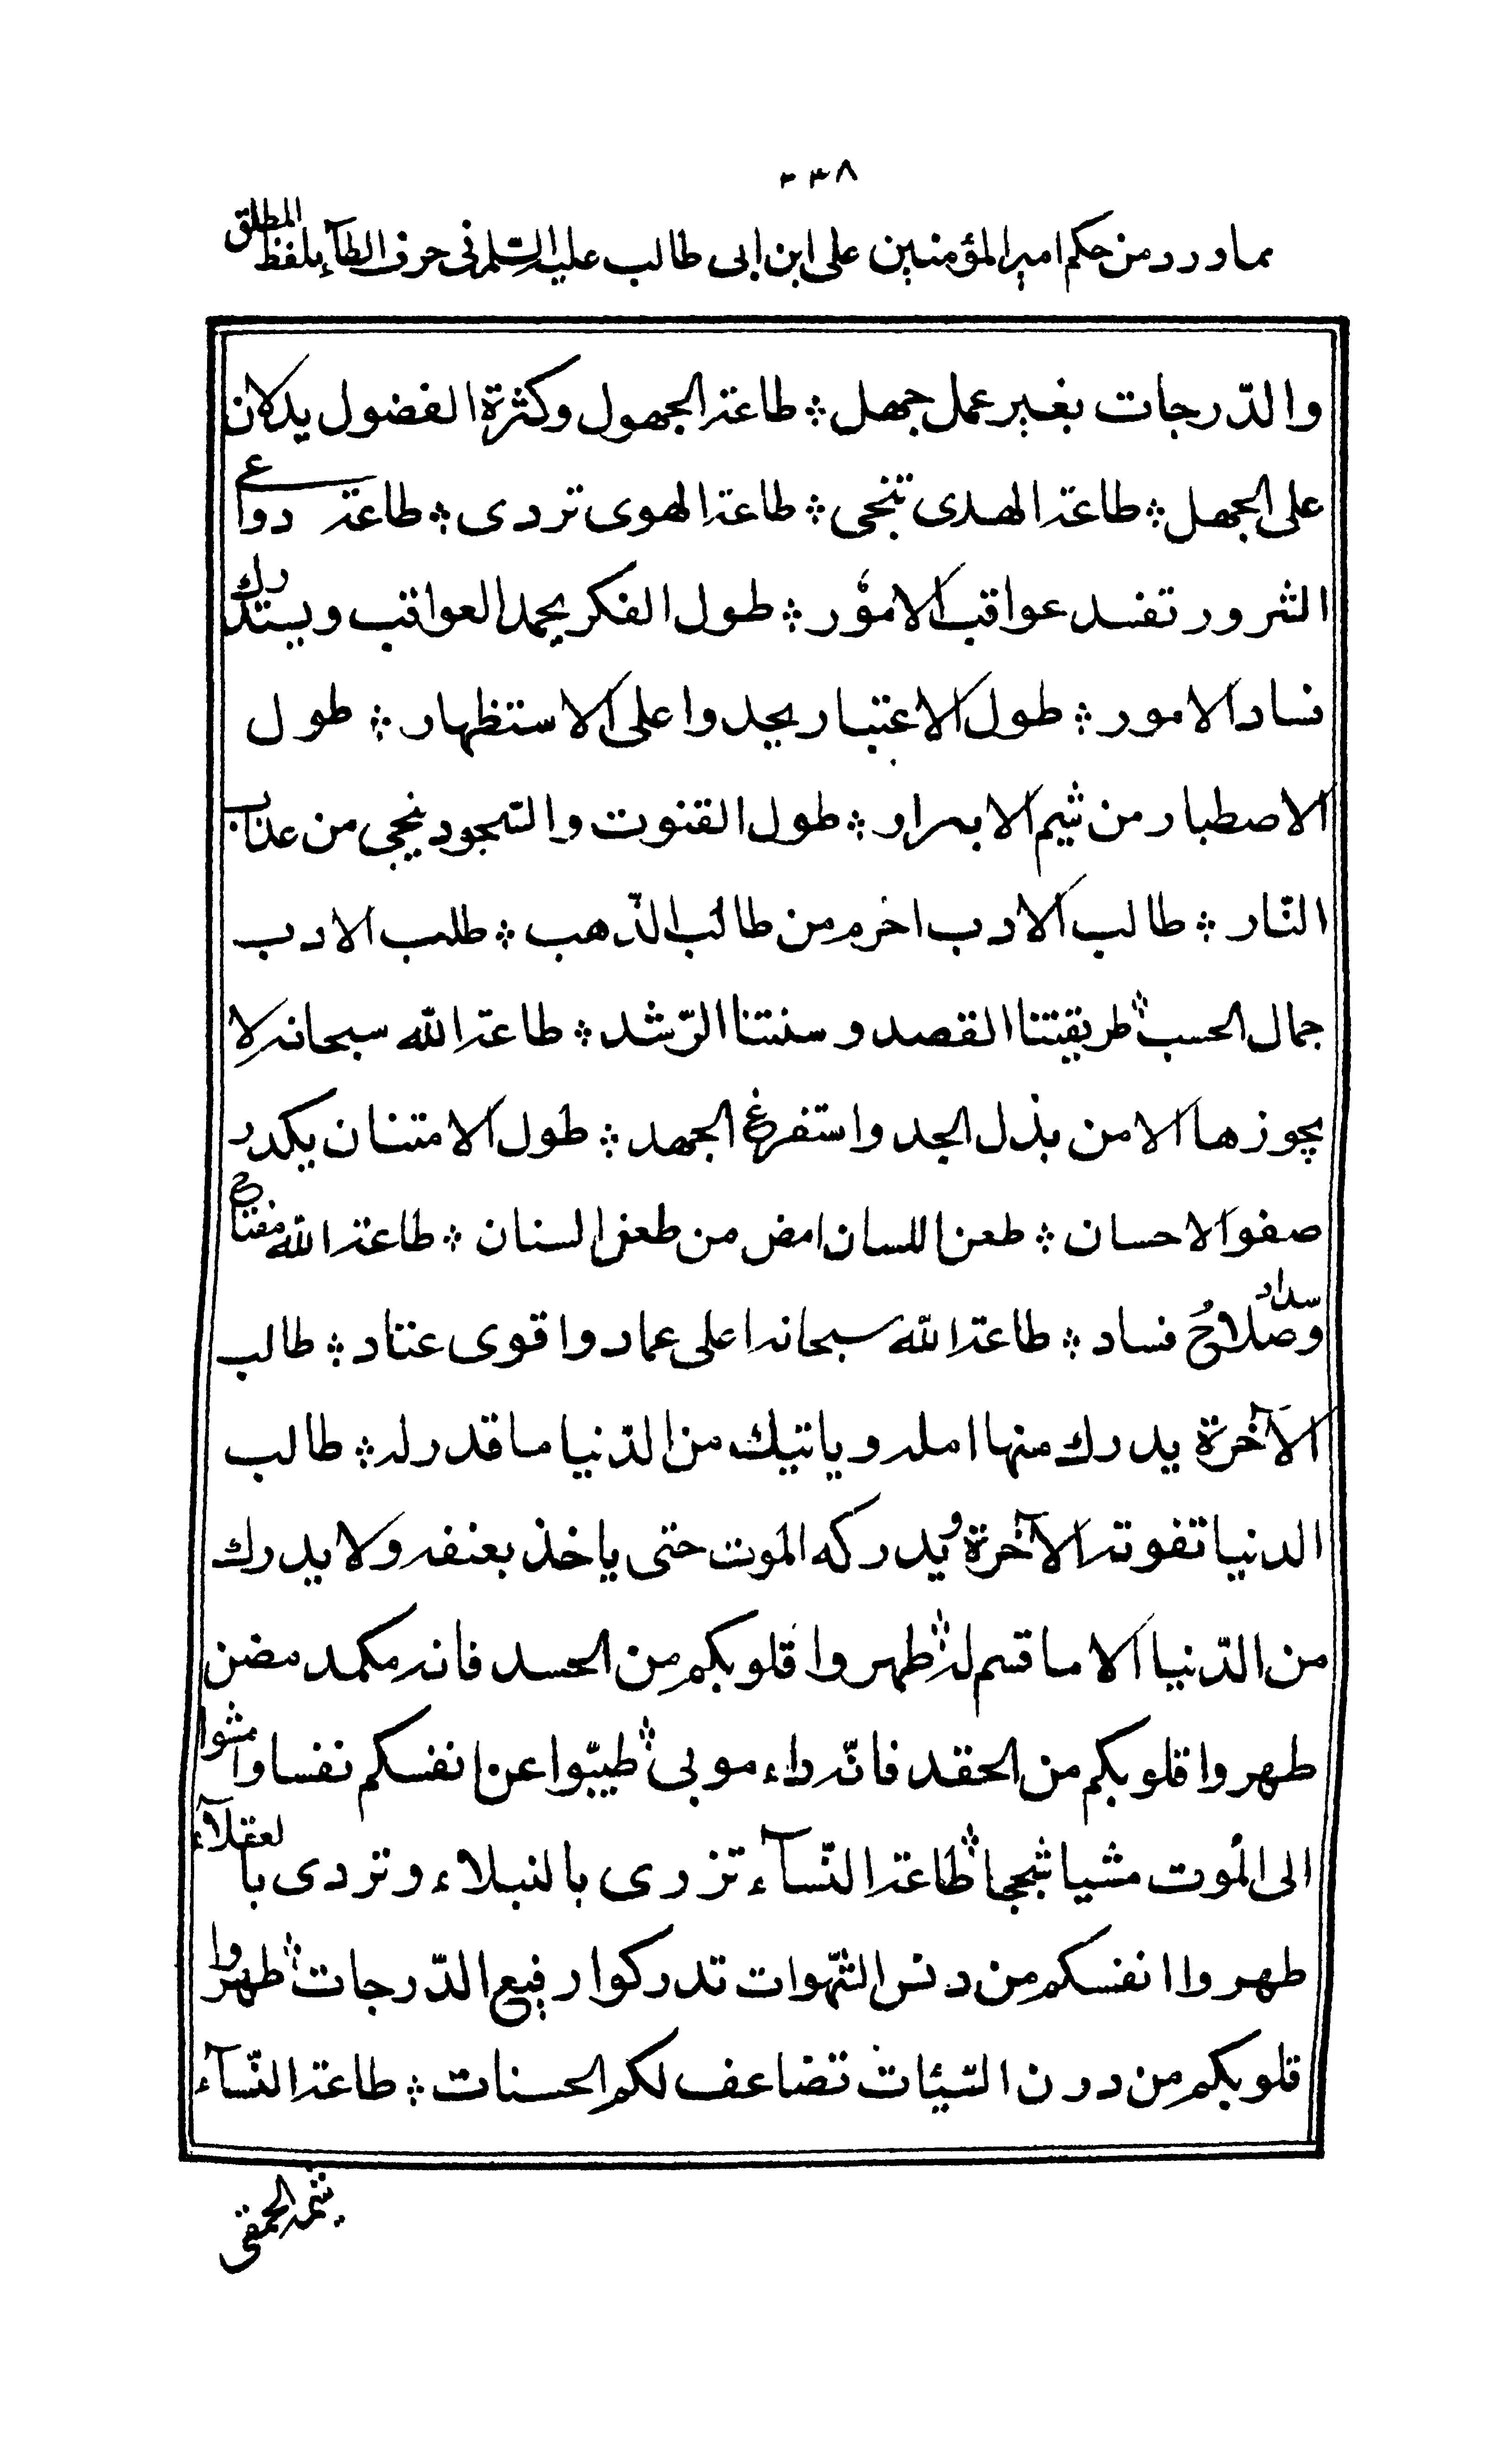 ٢٣٨
مما ورد من حكم امير المؤمنين على ابن ابى طالب عليه السّلم فى حرف الطآء بلفظ المطلق
والدّرجات بغير عمل جهل ؞ طاعة الجهول وكثرة الفضول يدلان
على الجهل ؞ طاعة الهدى تنجى ؞ طاعة الهوى تردى ؞ طاعة دواعى
الشرور تفسد عواقب الامؤر ؞ طول الفكر يحمد العواقب ويستدرك
فساد الامور ؞ طول الاعتبار يحدوا على الاستظهار ؞ طول
الاصطبار من شيم الابرار ؞ طول القنوت والسّجود ينجى من عذاب
النّار ؞ طالب الادب احزم من طالب الذّهب ؞ طلب الادب
جمال الحسب ؞ طريقتنا القصد و سنتنا الرّشد ؞ طاعة الله سبحانه لا
يجوزها الا من بذل الجد واستفرغ الجهد ؞ طول الامتنان يكدر
صفو الاحسان ؞ طعن اللسان امض من طعن السنان ؞ طاعة الله مفتاح
سداد وصلاحُ فساد ؞ طاعة الله سبحانه اعلى عماد واقوى عتاد ؞ طالب
الآخرة يدرك منها امله وياتيك من الدّنيا ما قدر له ؞ طالب
الدنيا تفوته الآخرة ويدركه الموت حتى ياخذ بعنفه ولا يدرك
من الدّنيا الا ما قسم له ؞ طهروا قلوبكم من الحسد فانه مكمد مضن
طهروا قلوبكم من الحقد فانّه داء موبى ؞ طيبّوا عن انفسكم نفسا وامشوا
الى الموت مشيا سجحا ؞ طاعة النّسآء تزرى بالنبلاء وتردى بالعقلآء
طهروا انفسكم من دنس الشّهوات تدركوا رفيع الدّرجات ؞ طهروا
قلوبكم من درن السّيئات تضاعف لكم الحسنات ؞ طاعة النّسآء
شيمة الحمقى